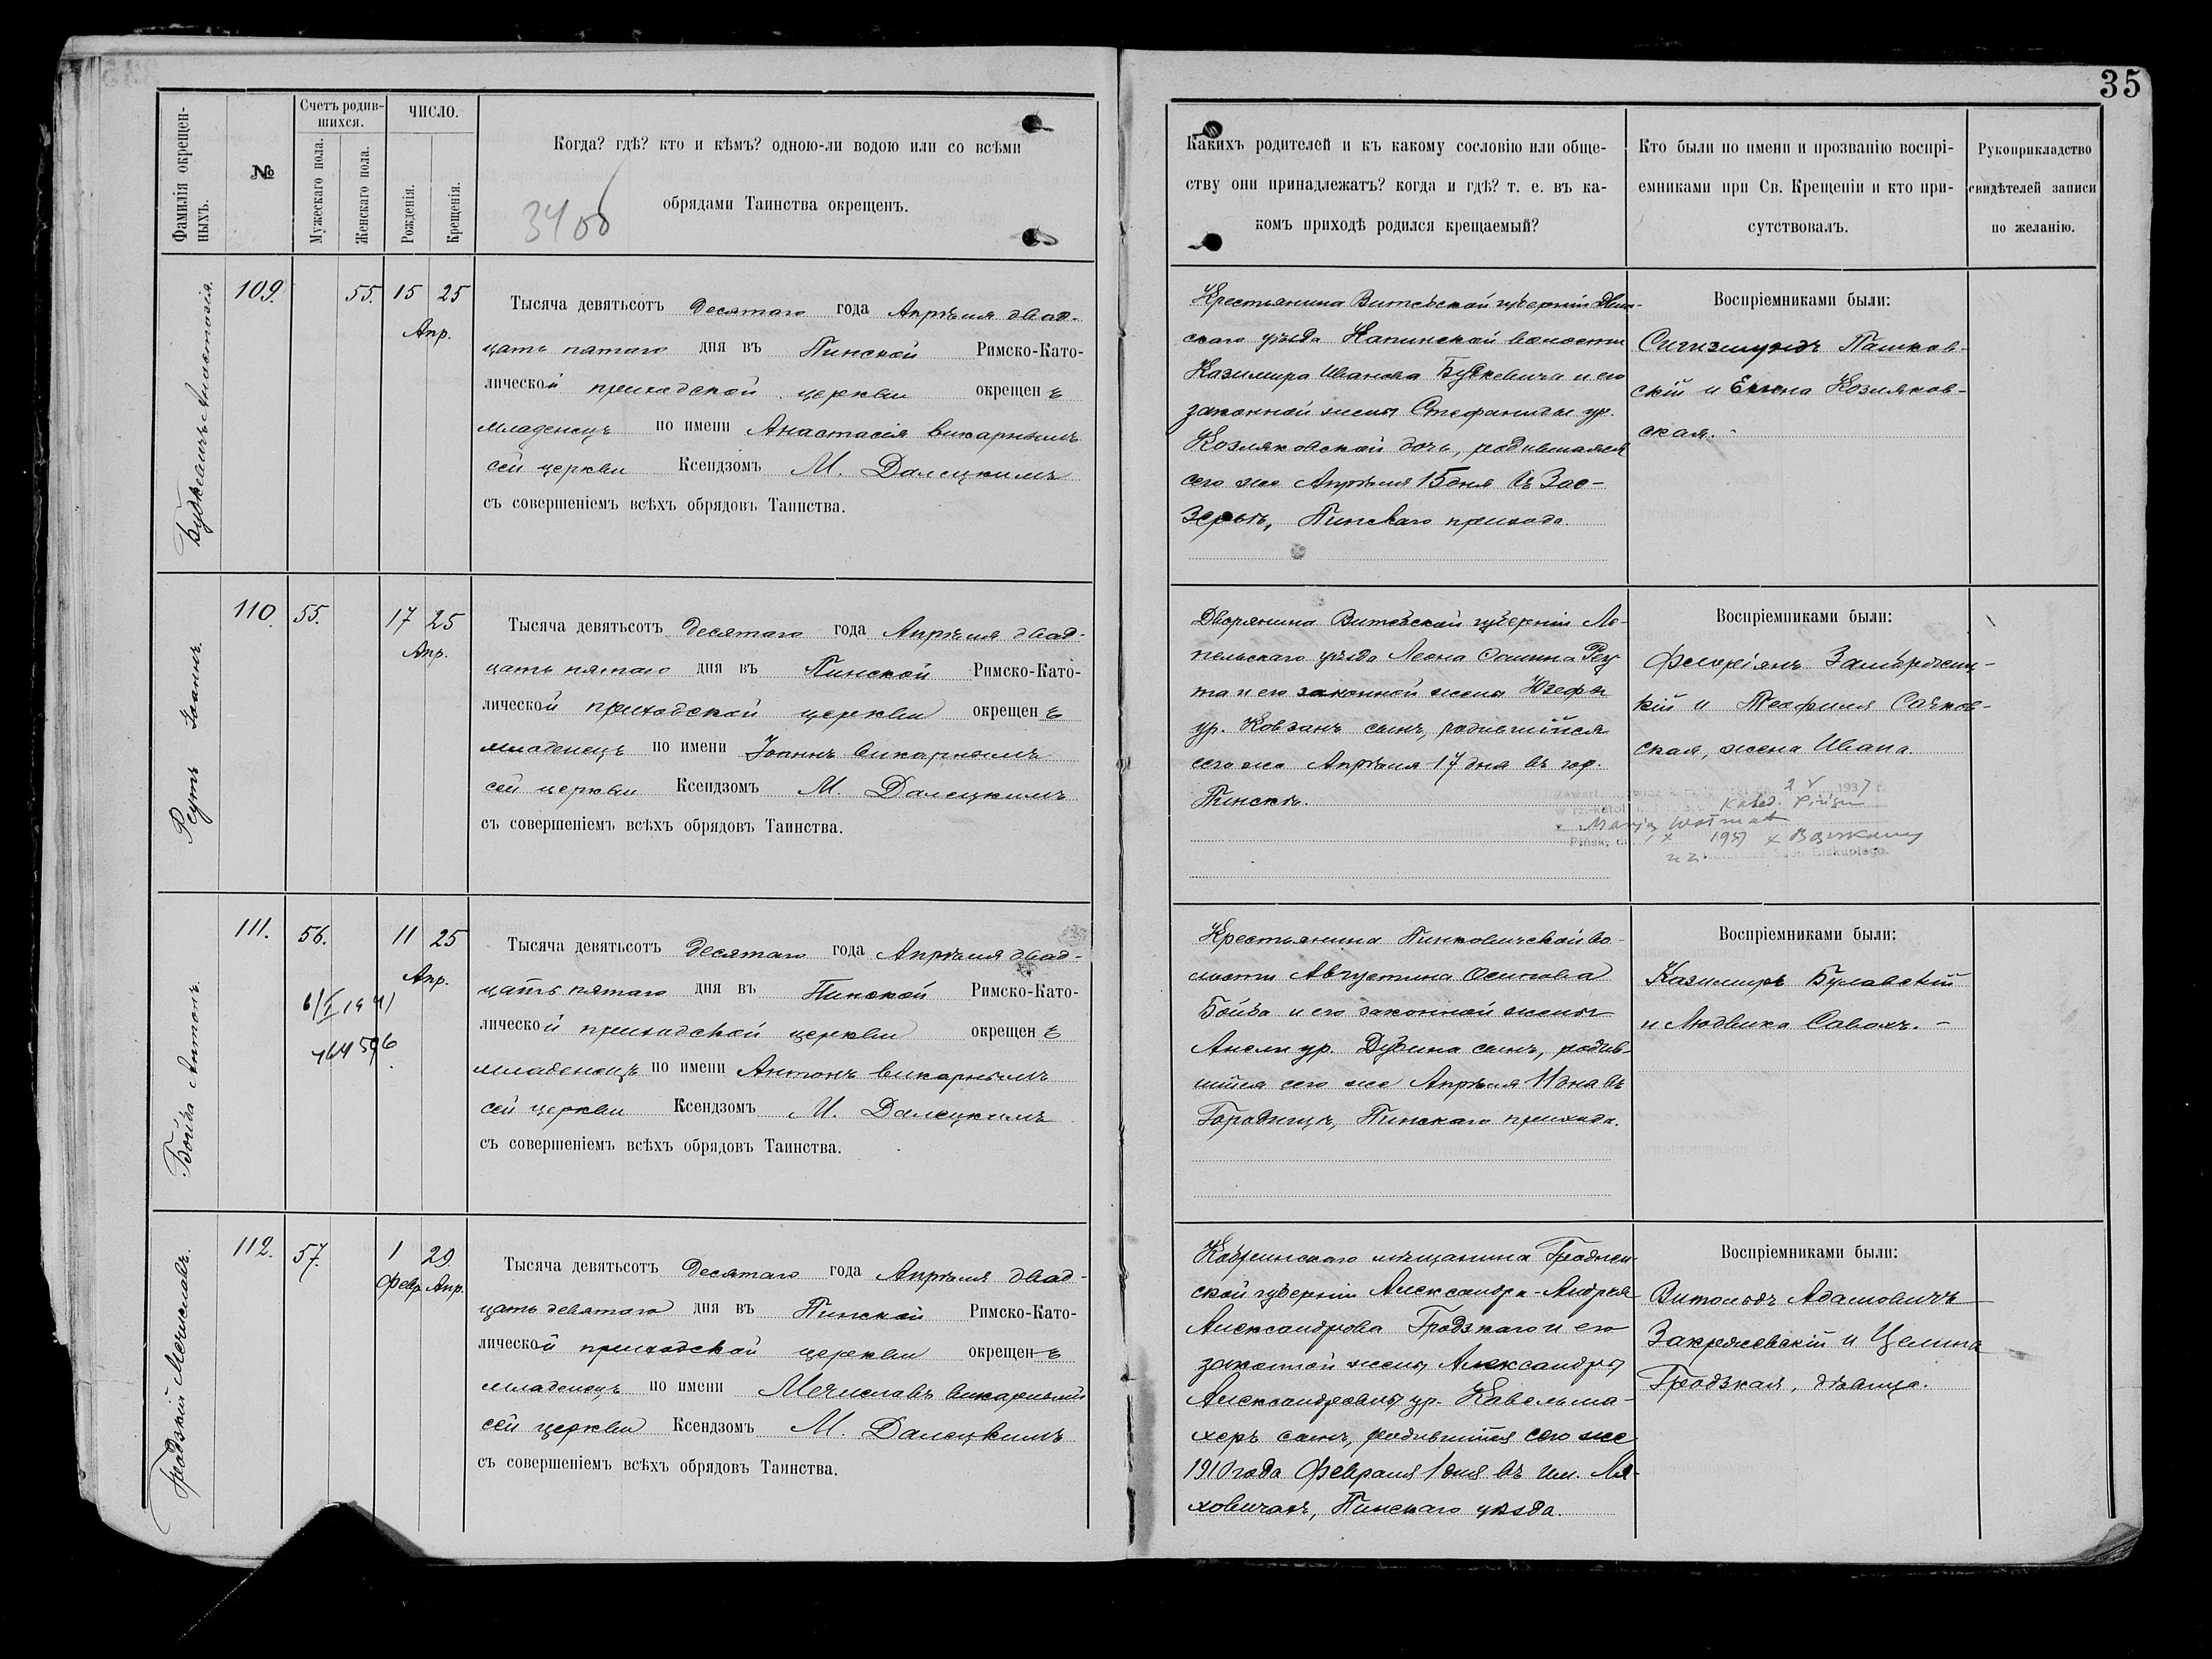 35
Фамилія окрещен-
ныхъ.
№
Счетъ родив-
шихся.
Мужескаго пола.
Женскаго пола.
ЧИСЛО.
Рожденія.
Крещенія.
Когда? гдѣ? кто и кѣмъ? одною-ли водою или со всѣми
обрядами Таинства окрещенъ.
Какихъ родителей и къ какому сословію или обще-
ству они принадлежатъ? когда и гдѣ? т. е. въ ка-
комъ приходѣ родился крещаемый?
Кто были по имени и прозванію воспрі-
емниками при Св. Крещеніи и кто при-
сутствовалъ.
Рукоприкладство
свидѣтелей записи
по желанію.
Будкевичъ Анастасія.
109. 55. 15 25
Апр.
Тысяча девятьсотъ десятаго года Апрѣля двад-
цать пятаго дня въ Пинской Римско-Като-
лической приходской церкви окрещенъ
младенецъ по имени Анастасія викарнымъ
сей церкви Ксендзомъ М. Далецкимъ
съ совершеніемъ всѣхъ обрядовъ Таинства.
Крестьянина Витебской губерніи Двин-
скаго уѣзда Капинской волости
Казимира Иванова Будкевича и его
законной жены Стефаниды ур.
Козляковской дочь, родившаяся
сего же Апрѣля 15 дня въ Зао-
зерьѣ, Пинскаго прихода.
Воспріемниками были:
Сигизмундъ Пашков-
скій и Елена Козляков-
ская.-
Реутъ Іоаннъ.
110. 55. 17 25
Апр.
Тысяча девятьсотъ десятаго года Апрѣля двад-
цать пятаго дня въ Пинской Римско-Като-
лической приходской церкви окрещенъ
младенецъ по имени Іоаннъ викарнымъ
сей церкви Ксендзомъ М. Далецкимъ
съ совершеніемъ всѣхъ обрядовъ Таинства.
Дворянина Витебской губерніи Ле-
пельскаго уѣзда Леона Реу-
та и его законной жены Юзефы
ур. Ковзанъ сынъ, родившійся
сего же Апрѣля 17 дня въ гор.
Пинскѣ.
Воспріемниками были:
Флоріянъ
кій и Теофиля Сачков-
ская, жена Ивана.
2 V 1937 r.
Kated. Pińsku
Marją
Pińsk, d. X 1937
Бойда Антонъ.
111. 56. 11 25
Апр.
6/I 1941
464596
Тысяча девятьсотъ десятаго года Апрѣля двад-
цать пятаго дня въ Пинской Римско-Като-
лической приходской церкви окрещенъ
младенецъ по имени Антонъ викарнымъ
сей церкви Ксендзомъ М. Далецкимъ
съ совершеніемъ всѣхъ обрядовъ Таинства.
Крестьянина Пинковичской во-
лости Августина Осипова
Бойда и его законной жены
Анели ур. Дубина сынъ, родив-
шійся сего же Апрѣля 11 дня въ
Городищѣ, Пинскаго прихода.
Воспріемниками были:
Казимиръ Булавскій
и Людвика Саванъ.-
Гродзкій Мечиславъ.
112. 57. 1 29
Февр. Апр.
Тысяча девятьсотъ десятаго года Апрѣля двад-
цать девятаго дня въ Пинской Римско-Като-
лической приходской церкви окрещенъ
младенецъ по имени Мечиславъ викарнымъ
сей церкви Ксендзомъ М. Далецкимъ
съ совершеніемъ всѣхъ обрядовъ Таинства.
Кобринскаго мѣщанина Гроднен-
ской губерніи Александра-Андрея
Александрова Гродзкаго и его
законной жены Александры
Александровны ур. Кавельма-
херъ сынъ, родившійся сего же
1910 года Февраля 1 дня въ им. Ля-
ховичахъ, Пинскаго уѣзда.
Воспріемниками были:
Витольдъ Адамовичъ
Закржевскій и Целина
Гродзкая, дѣвица.